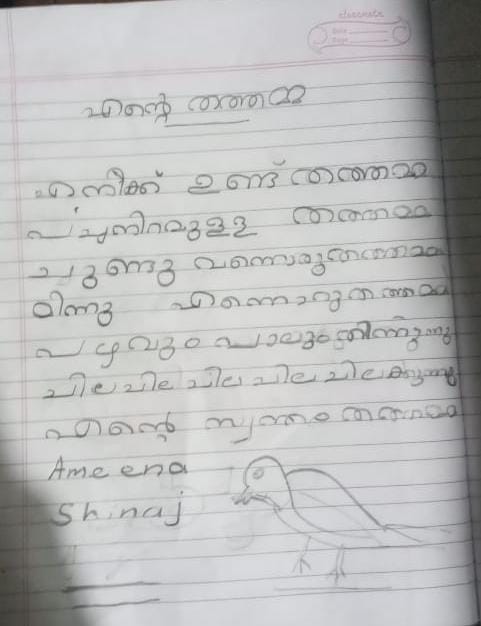 classmate
Date
Page
എന്റെ തത്തമ്മ
എനിക്ക് ഉണ്ട് തത്തമ്മ
പച്ചനിറമുള്ള തത്തമ്മ
ചുണ്ടു
തത്തമ്മ
പഴവും പാലും തിന്നുന്നു
ചില ചില ചില ചില ചിലക്കുന്നു
എന്റെ സ്വന്തം തത്തമ്മ
Ameena
Shinaj